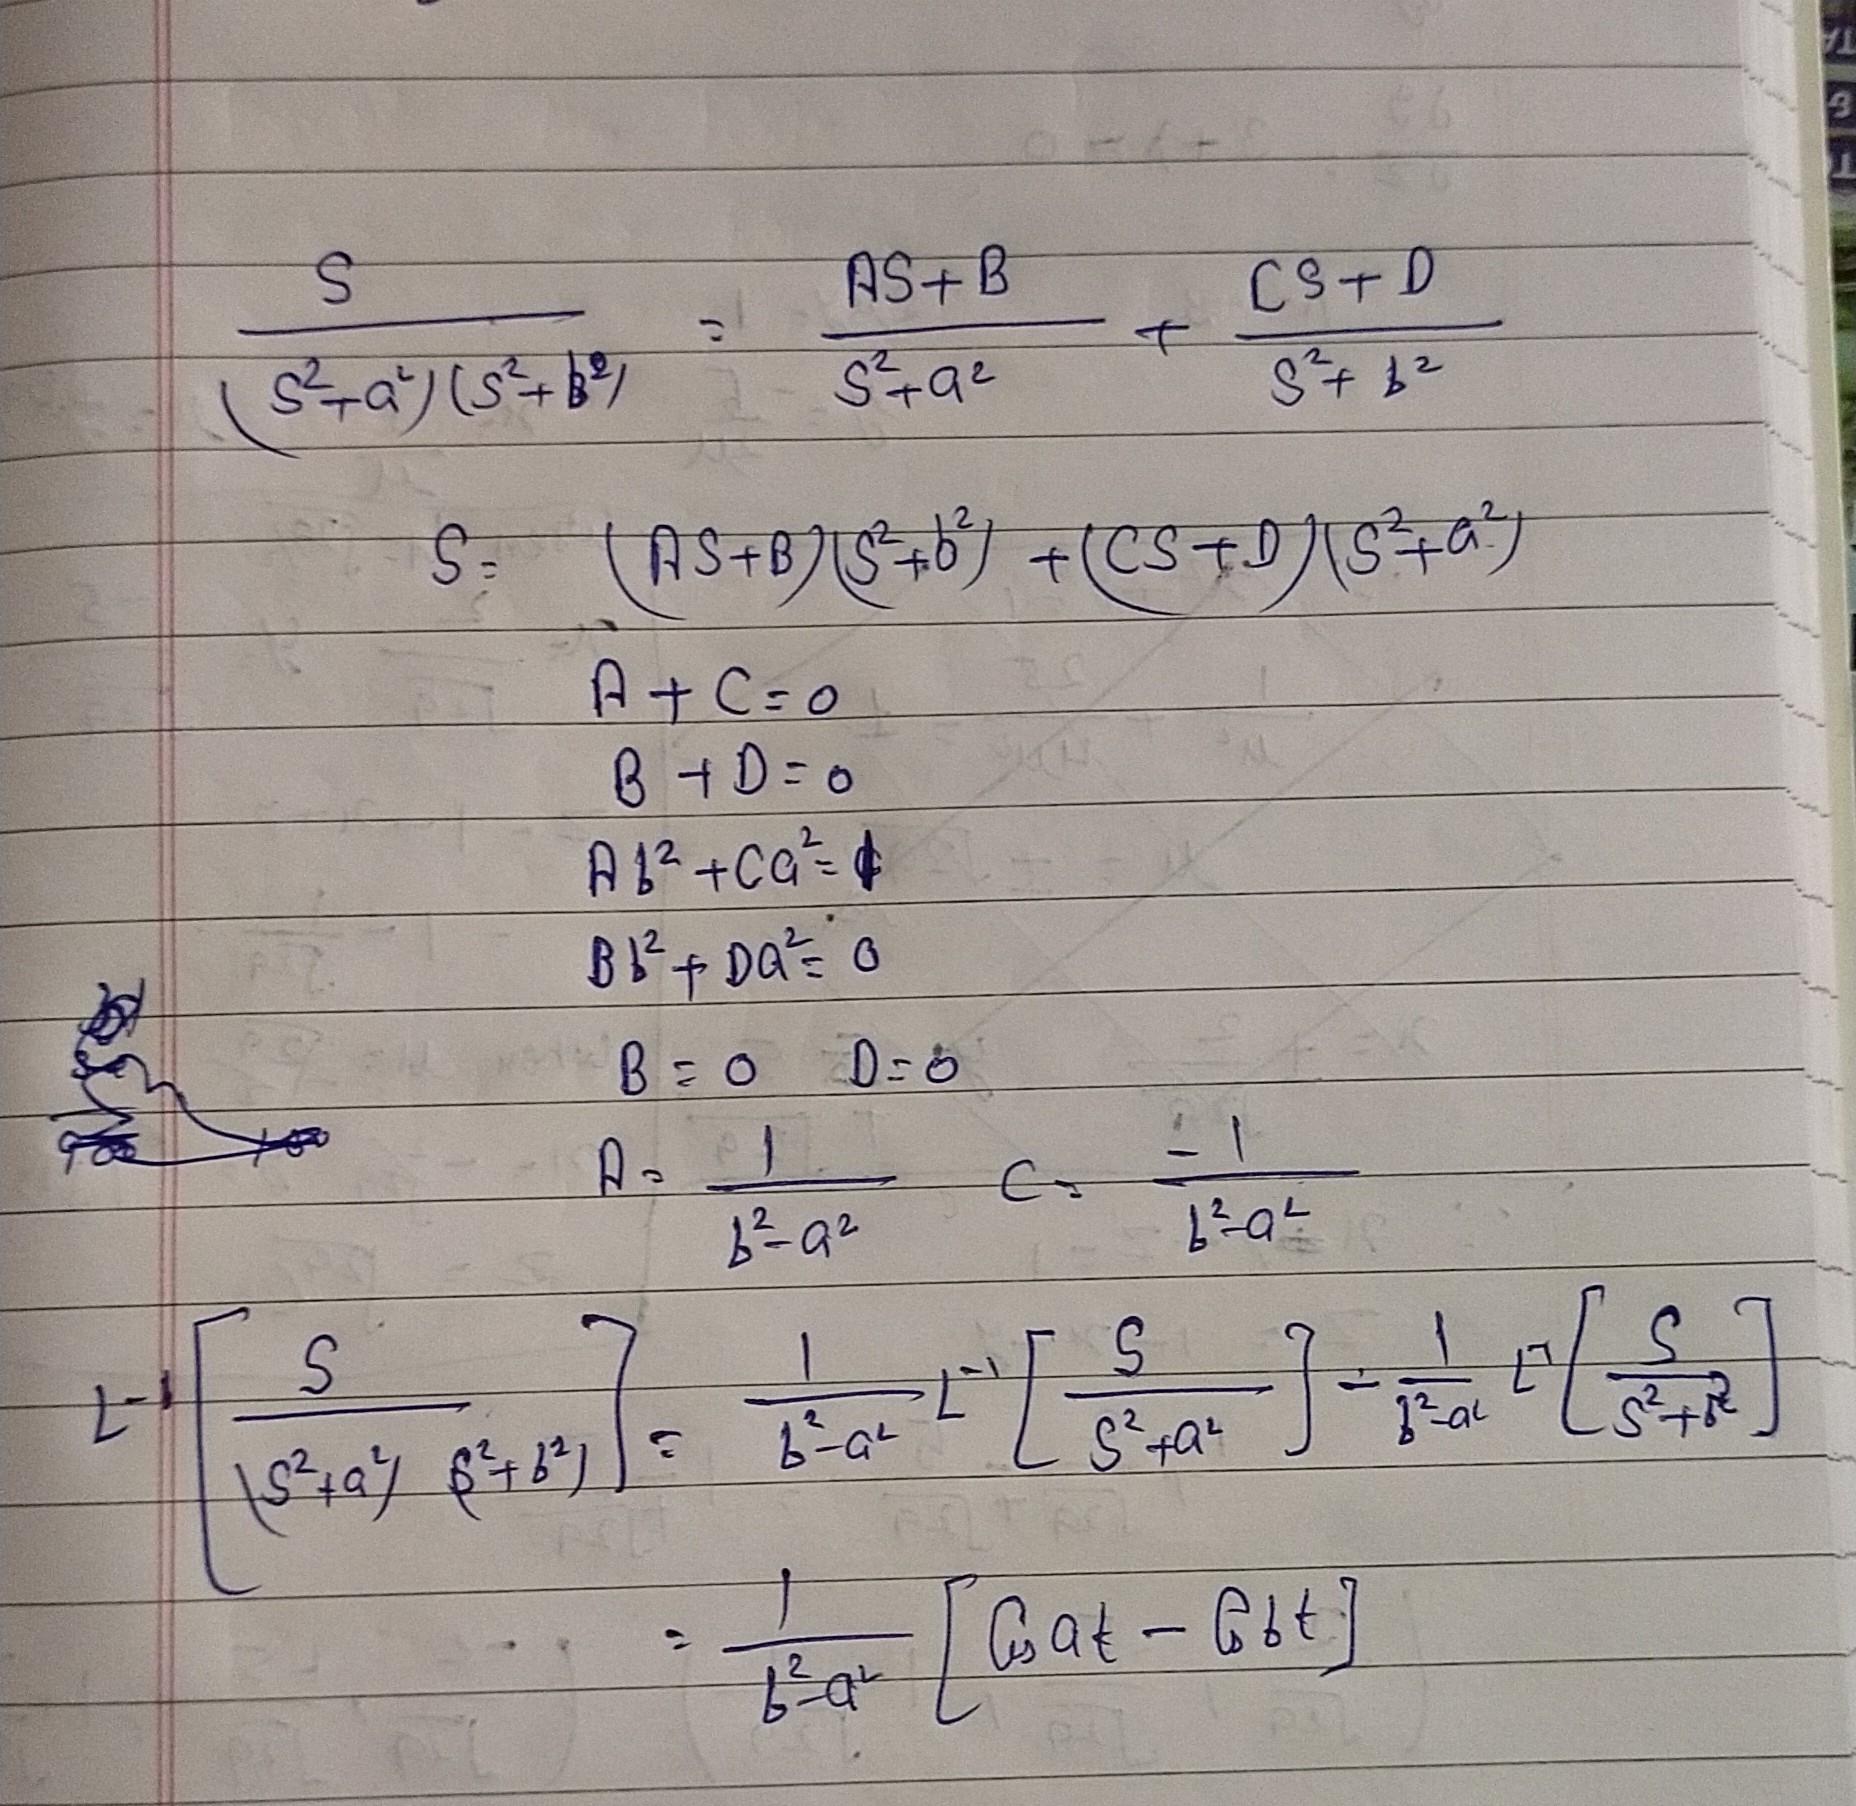 S/((S²+a²)(S²+b²)) = (AS+B)/(S²+a²) + (CS+D)/(S²+b²)
S = (AS+B)(S²+b²) + (CS+D)(S²+a²)
A + C = 0
B + D = 0
Ab² + Ca² = 1
Bb² + Da² = 0
B = 0 D = 0
A = 1/(b²-a²) C = -1/(b²-a²)
L⁻¹[S/((S²+a²)(S²+b²))] = 1/(b²-a²) L⁻¹[S/(S²+a²)] - 1/(b²-a²) L⁻¹[S/(S²+b²)]
= 1/(b²-a²) [Cos at - Cos bt]